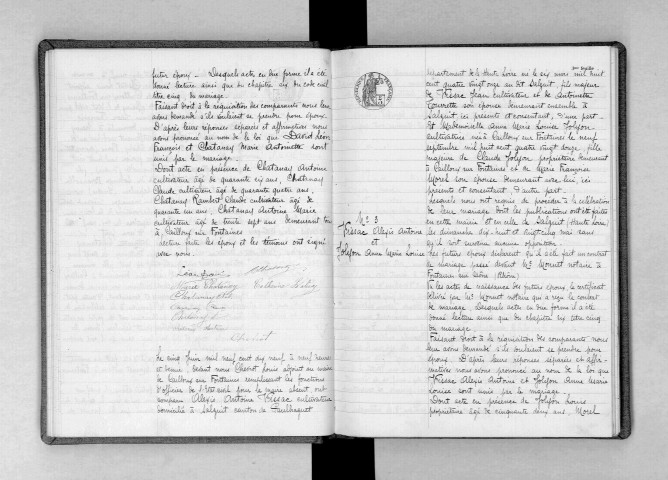 futur époux. Desquels acte en due forme il a été
donné lecture ainsi que du chapitre six du code civil
titre cinq du mariage.
Faisant droit à la réquisition des comparants nous leur
avons demandé s'ils veulent se prendre pour époux.
D'après leurs réponses séparées et affirmatives nous
avons prononcé au nom de la loi que David Léon
François et Chatanay Marie Antoinette sont
unis par le mariage.
Dont acte en présence de Chatanay Antoine
cultivateur âgé de quarante six ans, Chatanay
Claude cultivateur âgé de quarante quatre ans,
Chatanay Rambert Claude cultivateur âgé de
quarante un ans, Chatanay Antoine Marie
cultivateur âgé de trente sept ans demeurant tous
à Cailloux sur Fontaines
lecture faite les époux et les témoins ont signé
avec nous.
Le cinq juin mil neuf cent dix neuf à neuf heures
et demie devant nous Louis adjoint au maire
de Cailloux sur Fontaines remplissant les fonctions
d'officier de l'état civil dont le maire absent ont
comparu Alexis Antoine Vissac cultivateur
domicilié à Salzuit canton de Paulhaguet
N° 3
Vissac Alexis Antoine
et
Jolyjon Anne Marie Louise
département de la Haute Loire né le six mars mil huit
cent quatre vingt onze au dit Salzuit fils majeur
de Vissac Jean cultivateur et de Antoinette
son épouse demeurant ensemble à
Salzuit ici présents et consentant, d'une part
Et Mademoiselle Anne Marie Louise Jolyjon
cultivatrice née à Cailloux sur Fontaines le neuf
septembre mil huit cent quatre vingt douze, fille
majeure de Claude Jolyjon propriétaire demeurant
à Cailloux sur Fontaines et de Marie Françoise
Morel son épouse demeurant avec lui, ici
présents et consentant, d'autre part.
lesquels nous ont requis de procéder à la célébration
de leur mariage dont les publications ont été faites
en cette mairie et en celle de Salzuit (Haute Loire)
les dimanches dix-huit et vingt cinq mai sans
qu'il soit survenu aucune opposition.
Les futurs époux déclarent qu'il a été fait un contrat
de mariage passé devant Me Mornet notaire à
Fontaines sur Saône (Rhône)
Vu les actes de naissance des futurs époux, le certificat
délivré par Me Mornet notaire qui a reçu le contrat
de mariage. Desquels actes en due forme il a été
donné lecture ainsi que du chapitre six titre cinq
du mariage.
Faisant droit à la réquisition des comparants nous
leur avons demandé s'ils veulent se prendre pour
époux. D'après leurs réponses séparées et affir-
matives nous avons prononcé au nom de la loi que
Vissac Alexis Antoine et Jolyjon Anne Marie
Louise sont unis par le mariage.
Dont acte en présence de Jolyjon Louis
propriétaire âgé de cinquante deux ans, Morel